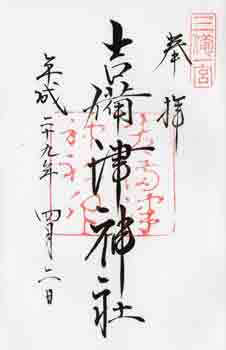 三備一宮
奉拝
吉備津神社
平成二十九年 四月六日